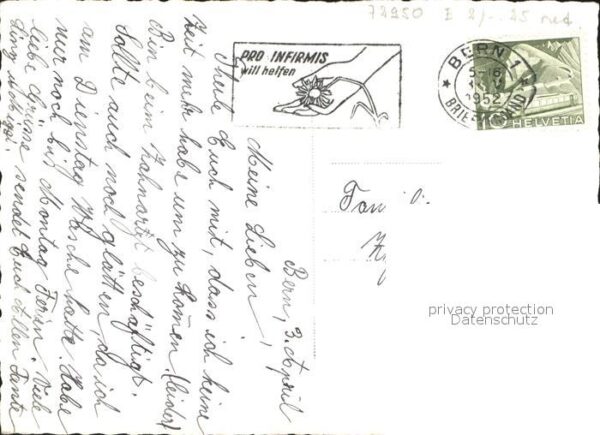 72950 E 2/-. 25 red.
PRO INFIRMIS
will helfen
BERN 1
1952
BRIEFVERSAND
10 HELVETIA
Bern, 3. April
Meine Lieben,
Theile Euch mit, dass ich keine
Zeit mehr habe um zu komen. (leider)
Bin beim Zahnarzt beschäftigt.
Sollte auch noch glätten, da ich
am Dienstag Wäsche hatte. Habe
nur noch bis Montag Ferien. Viele
liebe Grüsse sendet Euch allen Tante
Fam
privacy protection
Datenschutz